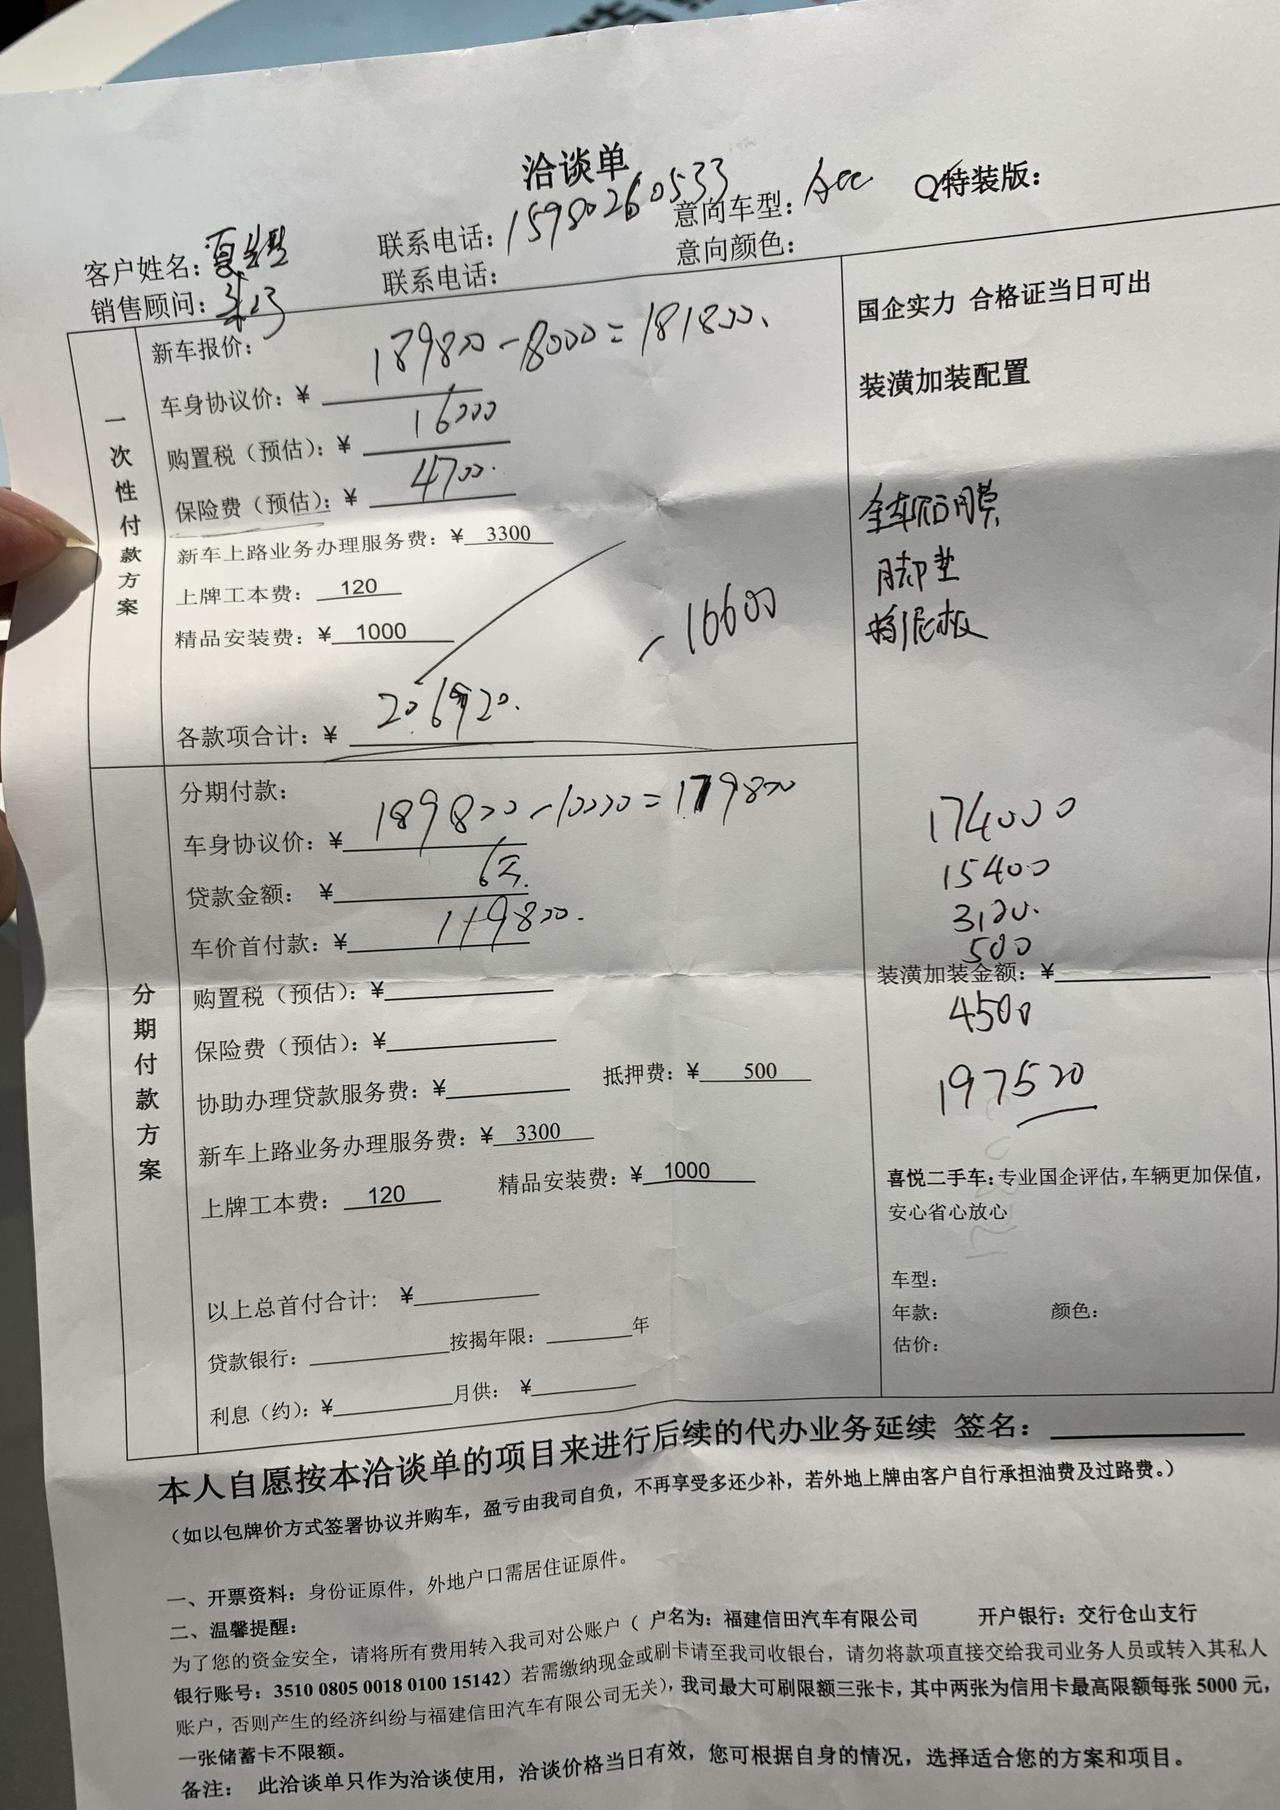 洽谈单
客户姓名：夏 联系电话：15980260533 意向车型：Acc Q特装版：
销售顾问： 联系电话： 意向颜色：
一次性付款方案
新车报价：
车身协议价：¥ 189800-8000=181800.
购置税（预估）：¥ 16000
保险费（预估）：¥ 4700.
新车上路业务办理服务费：¥ 3300
上牌工本费： 120
精品安装费：¥ 1000
-16600
各款项合计：¥ 206920.
分期付款方案
分期付款：
车身协议价：¥ 189800-10000=179800
贷款金额： ¥ 6万.
车价首付款：¥ 119800.
购置税（预估）：¥
保险费（预估）：¥
协助办理贷款服务费：¥ 抵押费：¥ 500
新车上路业务办理服务费：¥ 3300
上牌工本费： 120 精品安装费：¥ 1000
以上总首付合计: ¥
贷款银行： 按揭年限： 年
利息（约）：¥ 月供： ¥
国企实力 合格证当日可出
装潢加装配置
全车膜
脚垫
挡泥板
174000
15400
3120.
500
装潢加装金额：¥
4500
197520
喜悦二手车：专业国企评估，车辆更加保值，
安心省心放心
车型：
年款： 颜色：
估价：
本人自愿按本洽谈单的项目来进行后续的代办业务延续 签名：
（如以包牌价方式签署协议并购车，盈亏由我司自负，不再享受多还少补，若外地上牌由客户自行承担油费及过路费。）
一、开票资料：身份证原件，外地户口需居住证原件。
二、温馨提醒：
为了您的资金安全，请将所有费用转入我司对公账户（ 户名为：福建信田汽车有限公司 开户银行：交行仓山支行
银行账号：3510 0805 0018 0100 15142）若需缴纳现金或刷卡请至我司收银台，请勿将款项直接交给我司业务人员或转入其私人
账户，否则产生的经济纠纷与福建信田汽车有限公司无关），我司最大可刷限额三张卡，其中两张为信用卡最高限额每张 5000 元，
一张储蓄卡不限额。
备注： 此洽谈单只作为洽谈使用，洽谈价格当日有效，您可根据自身的情况，选择适合您的方案和项目。